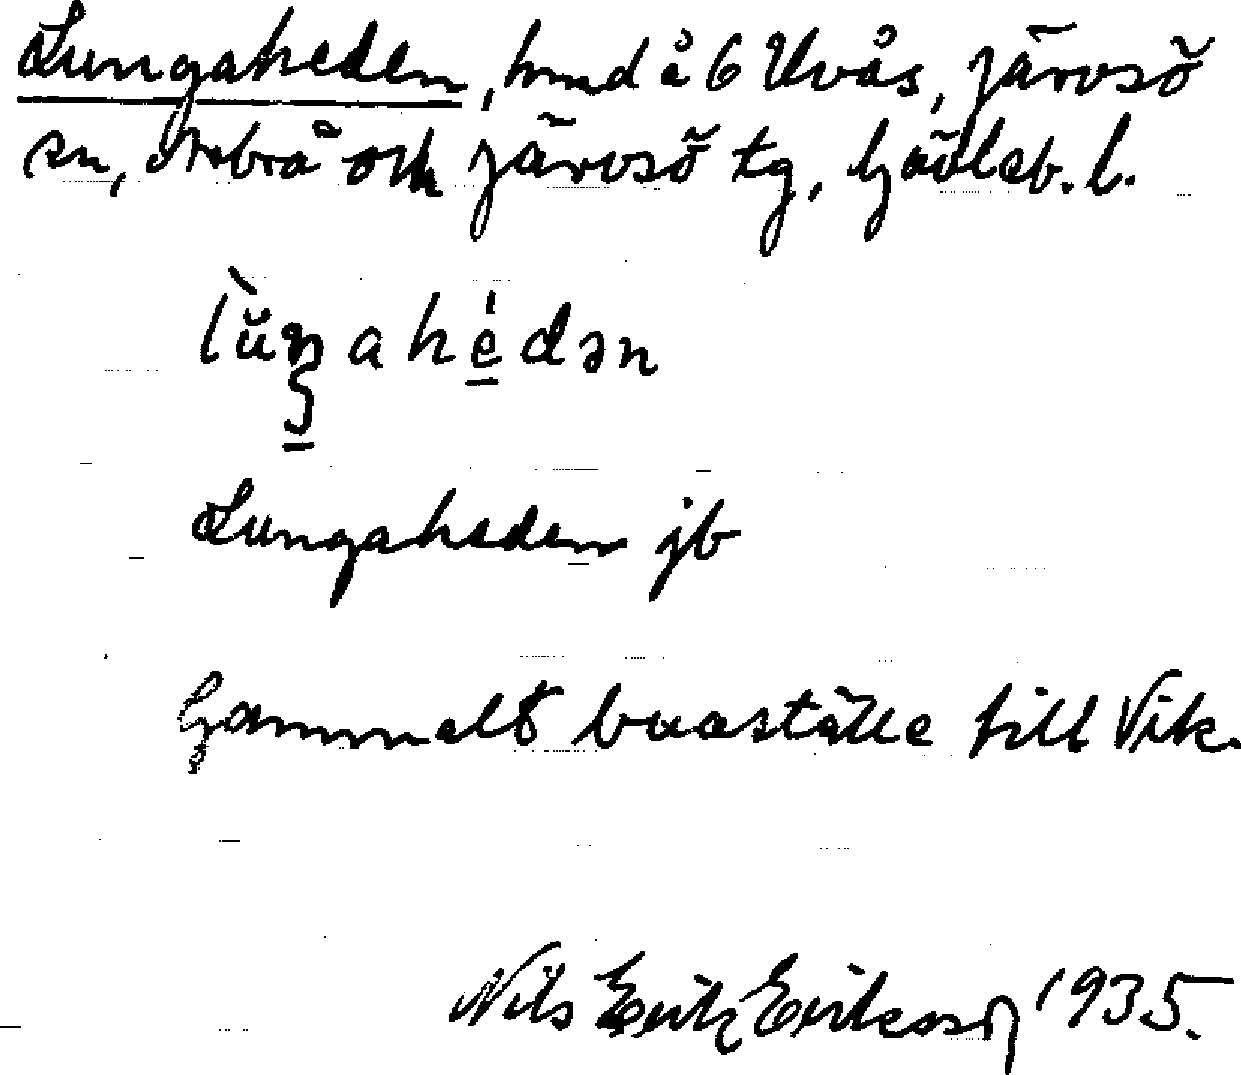 Lungaheden, hmd å 6 Uvås, Järvsö
sn, Arbrå och Järvsö tg, Gävleb. l.
lùŋahédən
Lungaheden jb
Gammalt buaställe till Vik.
Nils Erik Eriksson 1935.